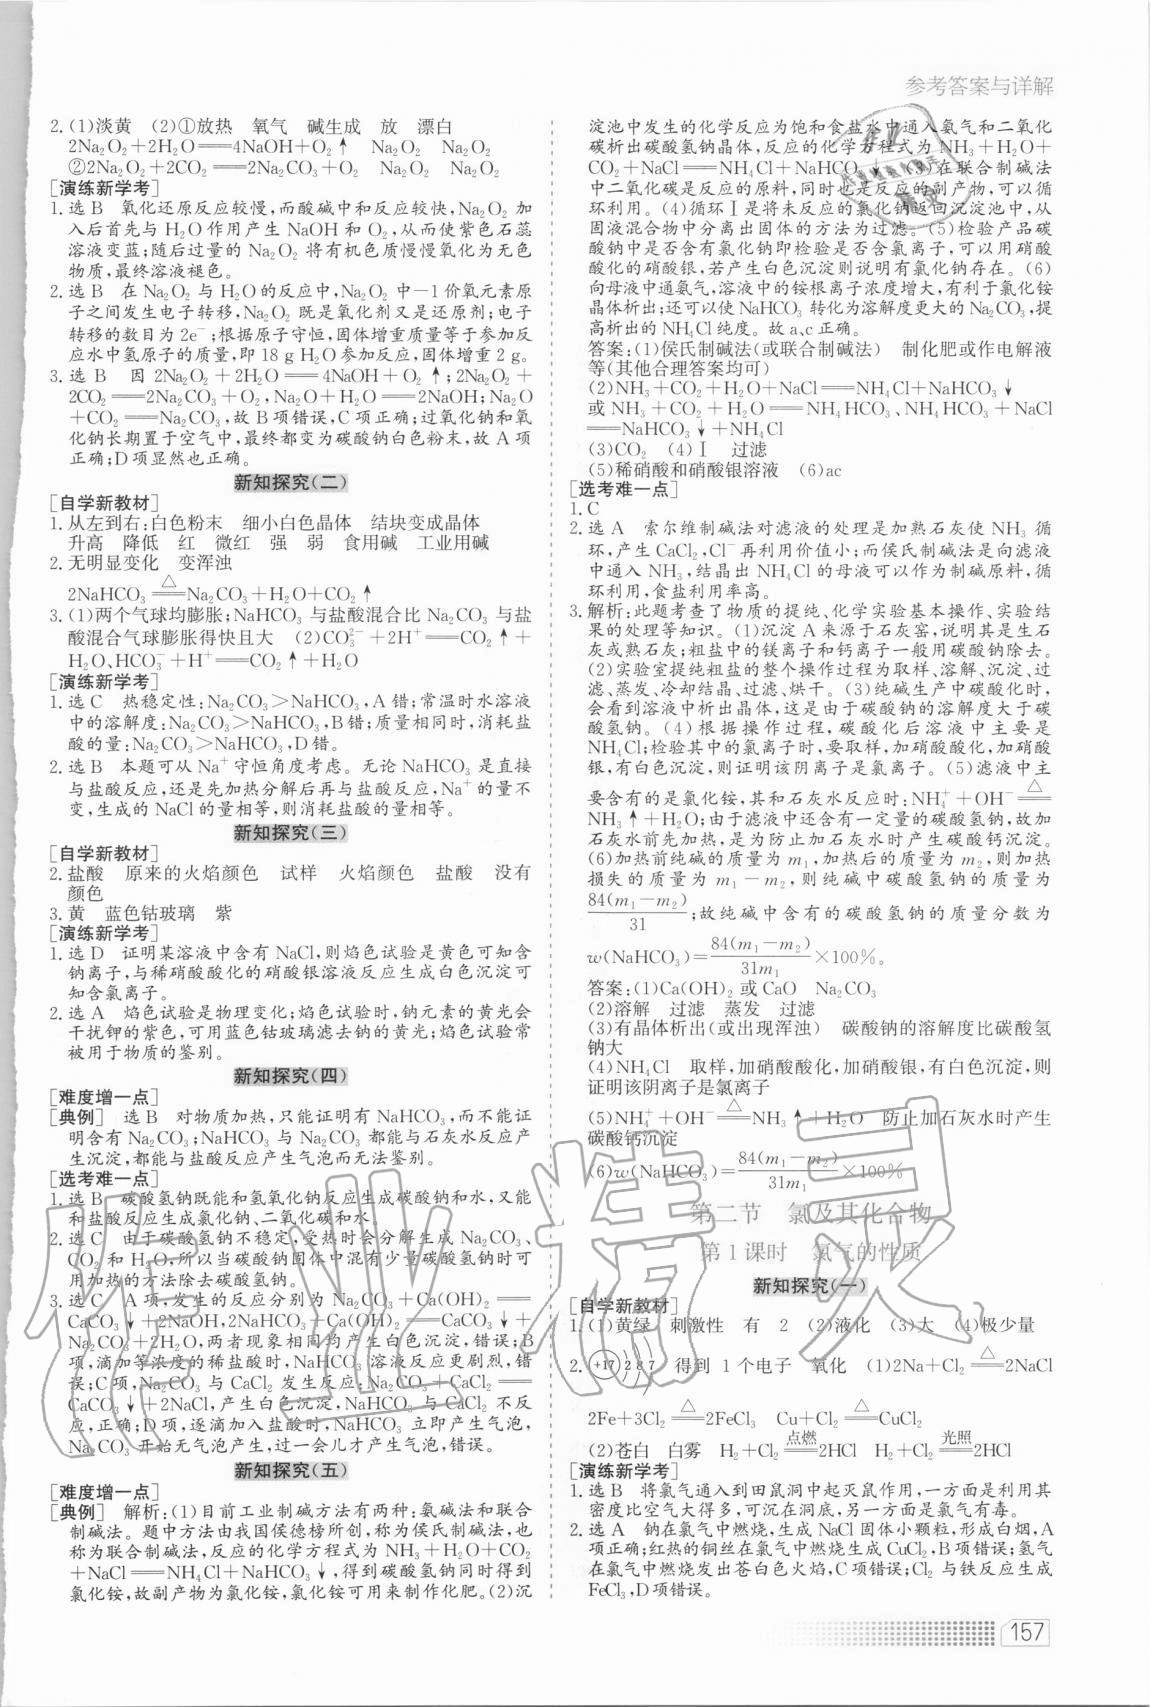 参考答案与详解
2.(1)淡黄 (2)①放热 氧气 碱生成 放 漂白
2Na₂O₂+2H₂O══4NaOH+O₂↑ Na₂O₂ Na₂O₂
②2Na₂O₂+2CO₂══2Na₂CO₃+O₂ Na₂O₂ Na₂O₂
[演练新学考]
1.选 B 氧化还原反应较慢,而酸碱中和反应较快,Na₂O₂ 加
入后首先与 H₂O 作用产生 NaOH 和 O₂,从而使紫色石蕊
溶液变蓝;随后过量的 Na₂O₂ 将有机色质慢慢氧化为无色
物质,最终溶液褪色。
2.选 B 在 Na₂O₂ 与 H₂O 的反应中,Na₂O₂ 中-1 价氧元素原
子之间发生电子转移,Na₂O₂ 既是氧化剂又是还原剂;电子
转移的数目为 2e⁻;根据原子守恒,固体增重质量等于参加反
应水中氢原子的质量,即 18 g H₂O 参加反应,固体增重 2 g。
3.选 B 因 2Na₂O₂+2H₂O══4NaOH+O₂↑;2Na₂O₂+
2CO₂══2Na₂CO₃+O₂,Na₂O+H₂O══2NaOH;Na₂O
+CO₂══Na₂CO₃,故 B 项错误,C 项正确;过氧化钠和氧
化钠长期置于空气中,最终都变为碳酸钠白色粉末,故 A 项
正确;D 项显然也正确。
新知探究(二)
[自学新教材]
1.从左到右:白色粉末 细小白色晶体 结块变成晶体
升高 降低 红 微红 强 弱 食用碱 工业用碱
2.无明显变化 变浑浊
2NaHCO₃══△══Na₂CO₃+H₂O+CO₂↑
3.(1)两个气球均膨胀;NaHCO₃ 与盐酸混合比 Na₂CO₃ 与盐
酸混合气球膨胀得快且大 (2)CO₃²⁻+2H⁺══CO₂↑+
H₂O、HCO₃⁻+H⁺══CO₂↑+H₂O
[演练新学考]
1.选 C 热稳定性:Na₂CO₃>NaHCO₃,A 错;常温时水溶液
中的溶解度:Na₂CO₃>NaHCO₃,B 错;质量相同时,消耗盐
酸的量:Na₂CO₃>NaHCO₃,D 错。
2.选 B 本题可从 Na⁺守恒角度考虑。无论 NaHCO₃ 是直接
与盐酸反应,还是先加热分解后再与盐酸反应,Na⁺的量不
变,生成的 NaCl 的量相等,则消耗盐酸的量相等。
新知探究(三)
[自学新教材]
2.盐酸 原来的火焰颜色 试样 火焰颜色 盐酸 没有
颜色
3.黄 蓝色钴玻璃 紫
[演练新学考]
1.选 D 证明某溶液中含有 NaCl,则焰色试验是黄色可知含
钠离子,与稀硝酸酸化的硝酸银溶液反应生成白色沉淀可
知含氯离子。
2.选 A 焰色试验是物理变化;焰色试验时,钠元素的黄光会
干扰钾的紫色,可用蓝色钴玻璃滤去钠的黄光;焰色试验常
被用于物质的鉴别。
新知探究(四)
[难度增一点]
[典例] 选 B 对物质加热,只能证明有 NaHCO₃,而不能证
明含有 Na₂CO₃;NaHCO₃ 与 Na₂CO₃ 都能与石灰水反应产
生沉淀,都能与盐酸反应产生气泡而无法鉴别。
[选考难一点]
1.选 B 碳酸氢钠既能和氢氧化钠反应生成碳酸钠和水,又能
和盐酸反应生成氯化钠、二氧化碳和水。
2.选 C 由于碳酸氢钠不稳定,受热时会分解生成 Na₂CO₃、
CO₂ 和 H₂O,所以当碳酸钠固体中混有少量碳酸氢钠时可
用加热的方法除去碳酸氢钠。
3.选 C A 项,发生的反应分别为 Na₂CO₃+Ca(OH)₂══
CaCO₃↓+2NaOH,2NaHCO₃+Ca(OH)₂══CaCO₃↓+
Na₂CO₃+2H₂O,两者现象相同均产生白色沉淀,错误;B
项,滴加等浓度的稀盐酸时,NaHCO₃ 溶液反应更剧烈,错
误;C 项,Na₂CO₃ 与 CaCl₂ 发生反应:Na₂CO₃+CaCl₂══
CaCO₃↓+2NaCl,产生白色沉淀,NaHCO₃ 与 CaCl₂ 不反
应,正确;D 项,逐滴加入盐酸时,NaHCO₃ 立即产生气泡,
Na₂CO₃ 开始无气泡产生,过一会儿才产生气泡,错误。
新知探究(五)
[难度增一点]
[典例] 解析:(1)目前工业制碱方法有两种:氨碱法和联合
制碱法。题中方法由我国侯德榜所创,称为侯氏制碱法,也
称为联合制碱法,反应的化学方程式为 NH₃+H₂O+CO₂
+NaCl══NH₄Cl+NaHCO₃↓,得到碳酸氢钠同时得到
氯化铵,故副产物为氯化铵,氯化铵可用来制作化肥。(2)沉
淀池中发生的化学反应为饱和食盐水中通入氨气和二氧化
碳析出碳酸氢钠晶体,反应的化学方程式为 NH₃+H₂O+
CO₂+NaCl══NH₄Cl+NaHCO₃↓。(3)在联合制碱法
中二氧化碳是反应的原料,同时也是反应的副产物,可以循
环利用。(4)循环Ⅰ是将未反应的氯化钠返回沉淀池中,从
固液混合物中分离出固体的方法为过滤。(5)检验产品碳
酸钠中是否含有氯化钠即检验是否含氯离子,可以用硝酸
酸化的硝酸银,若产生白色沉淀则说明有氯化钠存在。(6)
向母液中通氨气,溶液中的铵根离子浓度增大,有利于氯化铵
晶体析出;还可以使 NaHCO₃ 转化为溶解度更大的 Na₂CO₃,提
高析出的 NH₄Cl 纯度。故 a、c 正确。
答案:(1)侯氏制碱法(或联合制碱法) 制化肥或作电解液
等(其他合理答案均可)
(2)NH₃+CO₂+H₂O+NaCl══NH₄Cl+NaHCO₃↓
或 NH₃+CO₂+H₂O══NH₄HCO₃、NH₄HCO₃+NaCl
══NaHCO₃↓+NH₄Cl
(3)CO₂ (4)Ⅰ 过滤
(5)稀硝酸和硝酸银溶液 (6)ac
[选考难一点]
1.C
2.选 A 索尔维制碱法对滤液的处理是加熟石灰使 NH₃ 循
环,产生 CaCl₂,Cl⁻再利用价值小;而侯氏制碱法是向滤液
中通入 NH₃,结晶出 NH₄Cl 的母液可以作制碱原料,循
环利用,食盐利用率高。
3.解析:此题考查了物质的提纯、化学实验基本操作、实验结
果的处理等知识。(1)沉淀 A 来源于石灰窑,说明其是生石
灰或熟石灰;粗盐中的镁离子和钙离子一般用碳酸钠除去。
(2)实验室提纯粗盐的整个操作过程为取样、溶解、沉淀、过
滤、蒸发、冷却结晶、过滤、烘干。(3)纯碱生产中碳酸化时,
会看到溶液中析出晶体,这是由于碳酸钠的溶解度大于碳
酸氢钠。(4)根据操作过程,碳酸化后溶液中主要是
NH₄Cl;检验其中的氯离子时,要取样,加硝酸酸化,加硝酸
银,有白色沉淀,则证明该阴离子是氯离子。(5)滤液中主
要含有的是氯化铵,其和石灰水反应时:NH₄⁺+OH⁻══△══
NH₃↑+H₂O;由于滤液中还含有一定量的碳酸氢钠,故加
石灰水前先加热,是为防止加石灰水时产生碳酸钙沉淀。
(6)加热前纯碱的质量为 m₁,加热后的质量为 m₂,则加热
损失的质量为 m₁-m₂,则纯碱中碳酸氢钠的质量为
84(m₁-m₂)/31;故纯碱中含有的碳酸氢钠的质量分数为
w(NaHCO₃)=84(m₁-m₂)/31m₁×100%。
答案:(1)Ca(OH)₂ 或 CaO Na₂CO₃
(2)溶解 过滤 蒸发 过滤
(3)有晶体析出(或出现浑浊) 碳酸钠的溶解度比碳酸氢
钠大
(4)NH₄Cl 取样,加硝酸酸化,加硝酸银,有白色沉淀,则
证明该阴离子是氯离子
(5)NH₄⁺+OH⁻══△══NH₃↑+H₂O 防止加石灰水时产生
碳酸钙沉淀
(6)w(NaHCO₃)=84(m₁-m₂)/31m₁×100%
第二节 氯及其化合物
第 1 课时 氯气的性质
新知探究(一)
[自学新教材]
1.(1)黄绿 刺激性 有 2 (2)液化 (3)大 (4)极少量
2. +17 2 8 7 得到 1 个电子 氧化 (1)2Na+Cl₂══△══2NaCl
2Fe+3Cl₂══△══2FeCl₃ Cu+Cl₂══△══CuCl₂
(2)苍白 白雾 H₂+Cl₂══点燃══2HCl H₂+Cl₂══光照══2HCl
[演练新学考]
1.选 B 将氯气通入到田鼠洞中起灭鼠作用,一方面是利用其
密度比空气大得多,可沉在洞底,另一方面是氯气有毒。
2.选 A 钠在氯气中燃烧,生成 NaCl 固体小颗粒,形成白烟,A
项正确;红热的铜丝在氯气中燃烧生成 CuCl₂,B项错误;氢气
在氯气中燃烧发出苍白色火焰,C 项错误;Cl₂ 与铁反应生成
FeCl₃,D项错误。
作业精灵
157